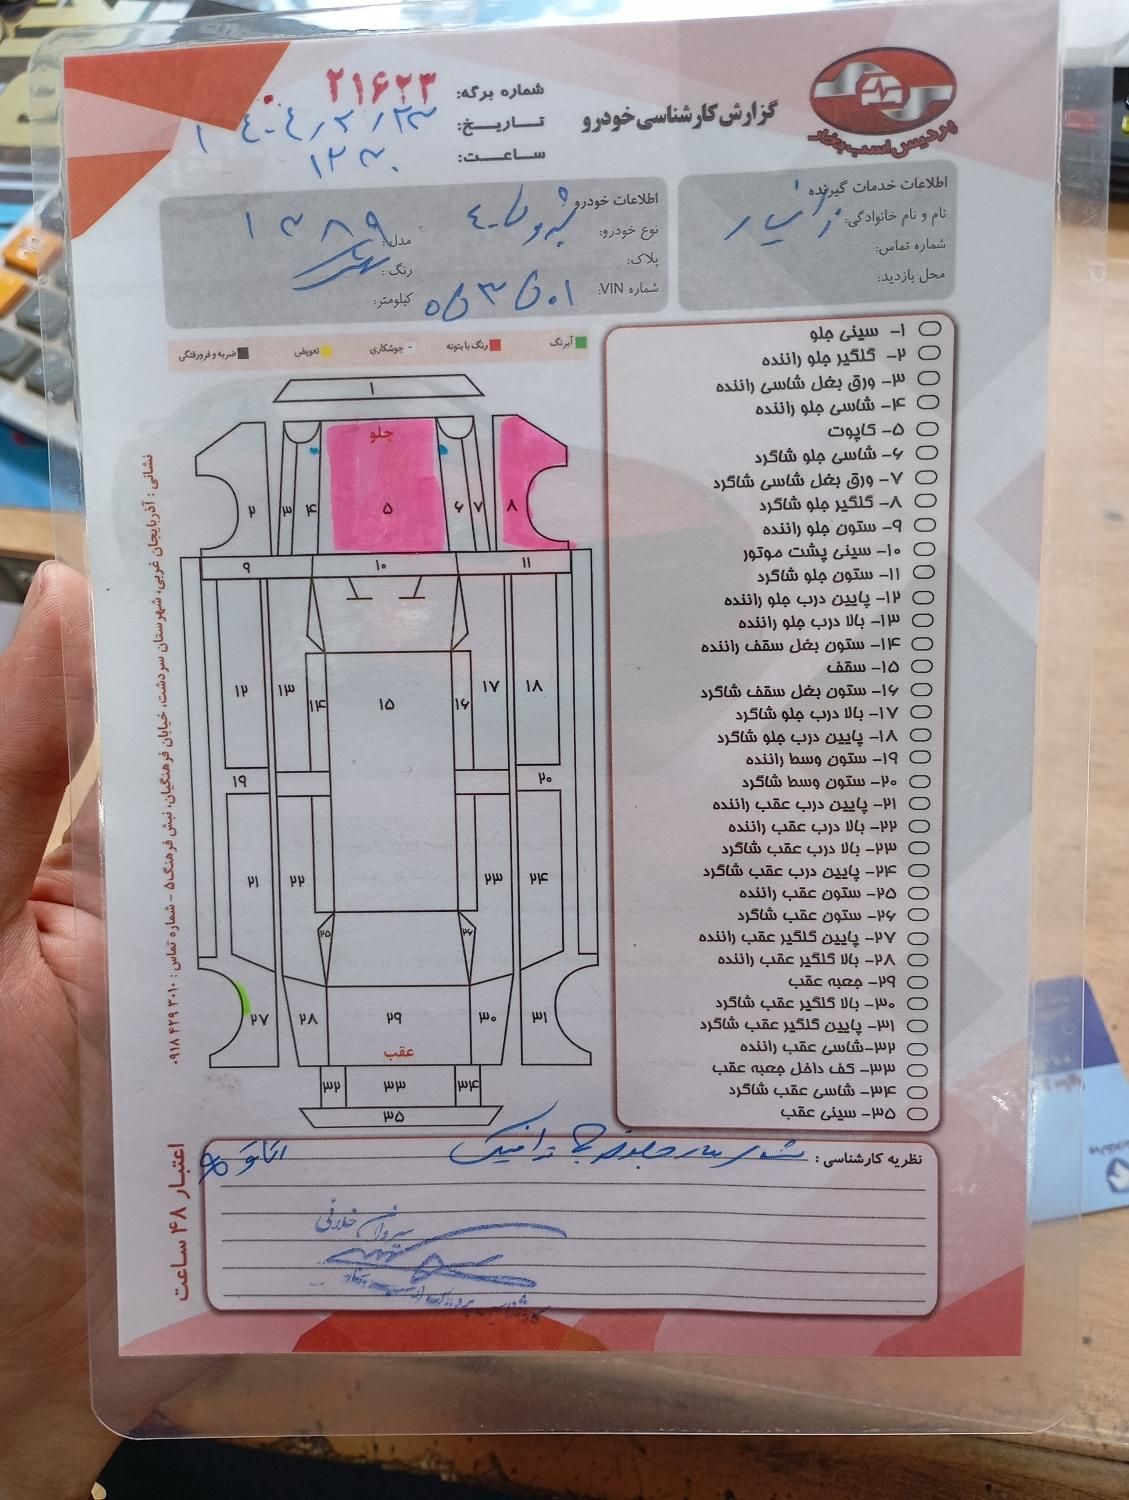 پردیس اسب بخار
گزارش کارشناسی خودرو
شماره برگه: ۲۱۶۲۳
تاریخ: ۱۴۰۴/۲/۲۳
ساعت:
اطلاعات خدمات گیرنده
نام و نام خانوادگی:
شماره تماس:
محل بازدید:
اطلاعات خودرو
نوع خودرو:
پلاک:
شماره VIN:
مدل: ۱۳۸۹
رنگ:
کیلومتر:
آبرنگ
رنگ با بتونه
جوشکاری
تعویض
ضربه و فرورفتگی
۱- سینی جلو
۲- گلگیر جلو راننده
۳- ورق بغل شاسی راننده
۴- شاسی جلو راننده
۵- کاپوت
۶- شاسی جلو شاگرد
۷- ورق بغل شاسی شاگرد
۸- گلگیر جلو شاگرد
۹- ستون جلو راننده
۱۰- سینی پشت موتور
۱۱- ستون جلو شاگرد
۱۲- پایین درب جلو راننده
۱۳- بالا درب جلو راننده
۱۴- ستون بغل سقف راننده
۱۵- سقف
۱۶- ستون بغل سقف شاگرد
۱۷- بالا درب جلو شاگرد
۱۸- پایین درب جلو شاگرد
۱۹- ستون وسط راننده
۲۰- ستون وسط شاگرد
۲۱- پایین درب عقب راننده
۲۲- بالا درب عقب راننده
۲۳- بالا درب عقب شاگرد
۲۴- پایین درب عقب شاگرد
۲۵- ستون عقب راننده
۲۶- ستون عقب شاگرد
۲۷- پایین گلگیر عقب راننده
۲۸- بالا گلگیر عقب راننده
۲۹- جعبه عقب
۳۰- بالا گلگیر عقب شاگرد
۳۱- پایین گلگیر عقب شاگرد
۳۲- شاسی عقب راننده
۳۳- کف داخل جعبه عقب
۳۴- شاسی عقب شاگرد
۳۵- سینی عقب
۱
جلو
۲ ۳ ۴ ۵ ۶ ۷ ۸
۹ ۱۰ ۱۱
۱۲ ۱۳ ۱۴ ۱۵ ۱۶ ۱۷ ۱۸
۱۹ ۲۰
۲۱ ۲۲ ۲۳ ۲۴
۲۵ ۲۶
۲۷ ۲۸ ۲۹ ۳۰ ۳۱
عقب
۳۲ ۳۳ ۳۴
۳۵
نشانی : آذربایجان غربی، شهرستان سردشت، خیابان فرهنگیان، نبش فرهنگ۵ - شماره تماس : ۳۰۱۰ ۴۲۹ ۰۹۱۸
اعتبار ۴۸ ساعت
نظریه کارشناسی :